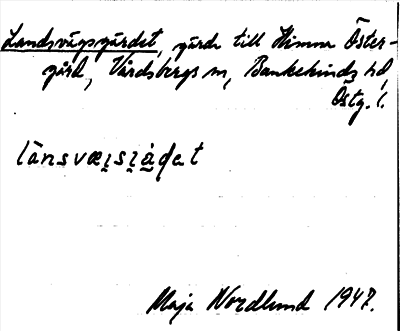 Landsvägsgärdet, gärde till Himna Öster-
gård, Vårdsbergs sn, Bankekinds hd,
Östg. l.
Maja Nordlund 1947.